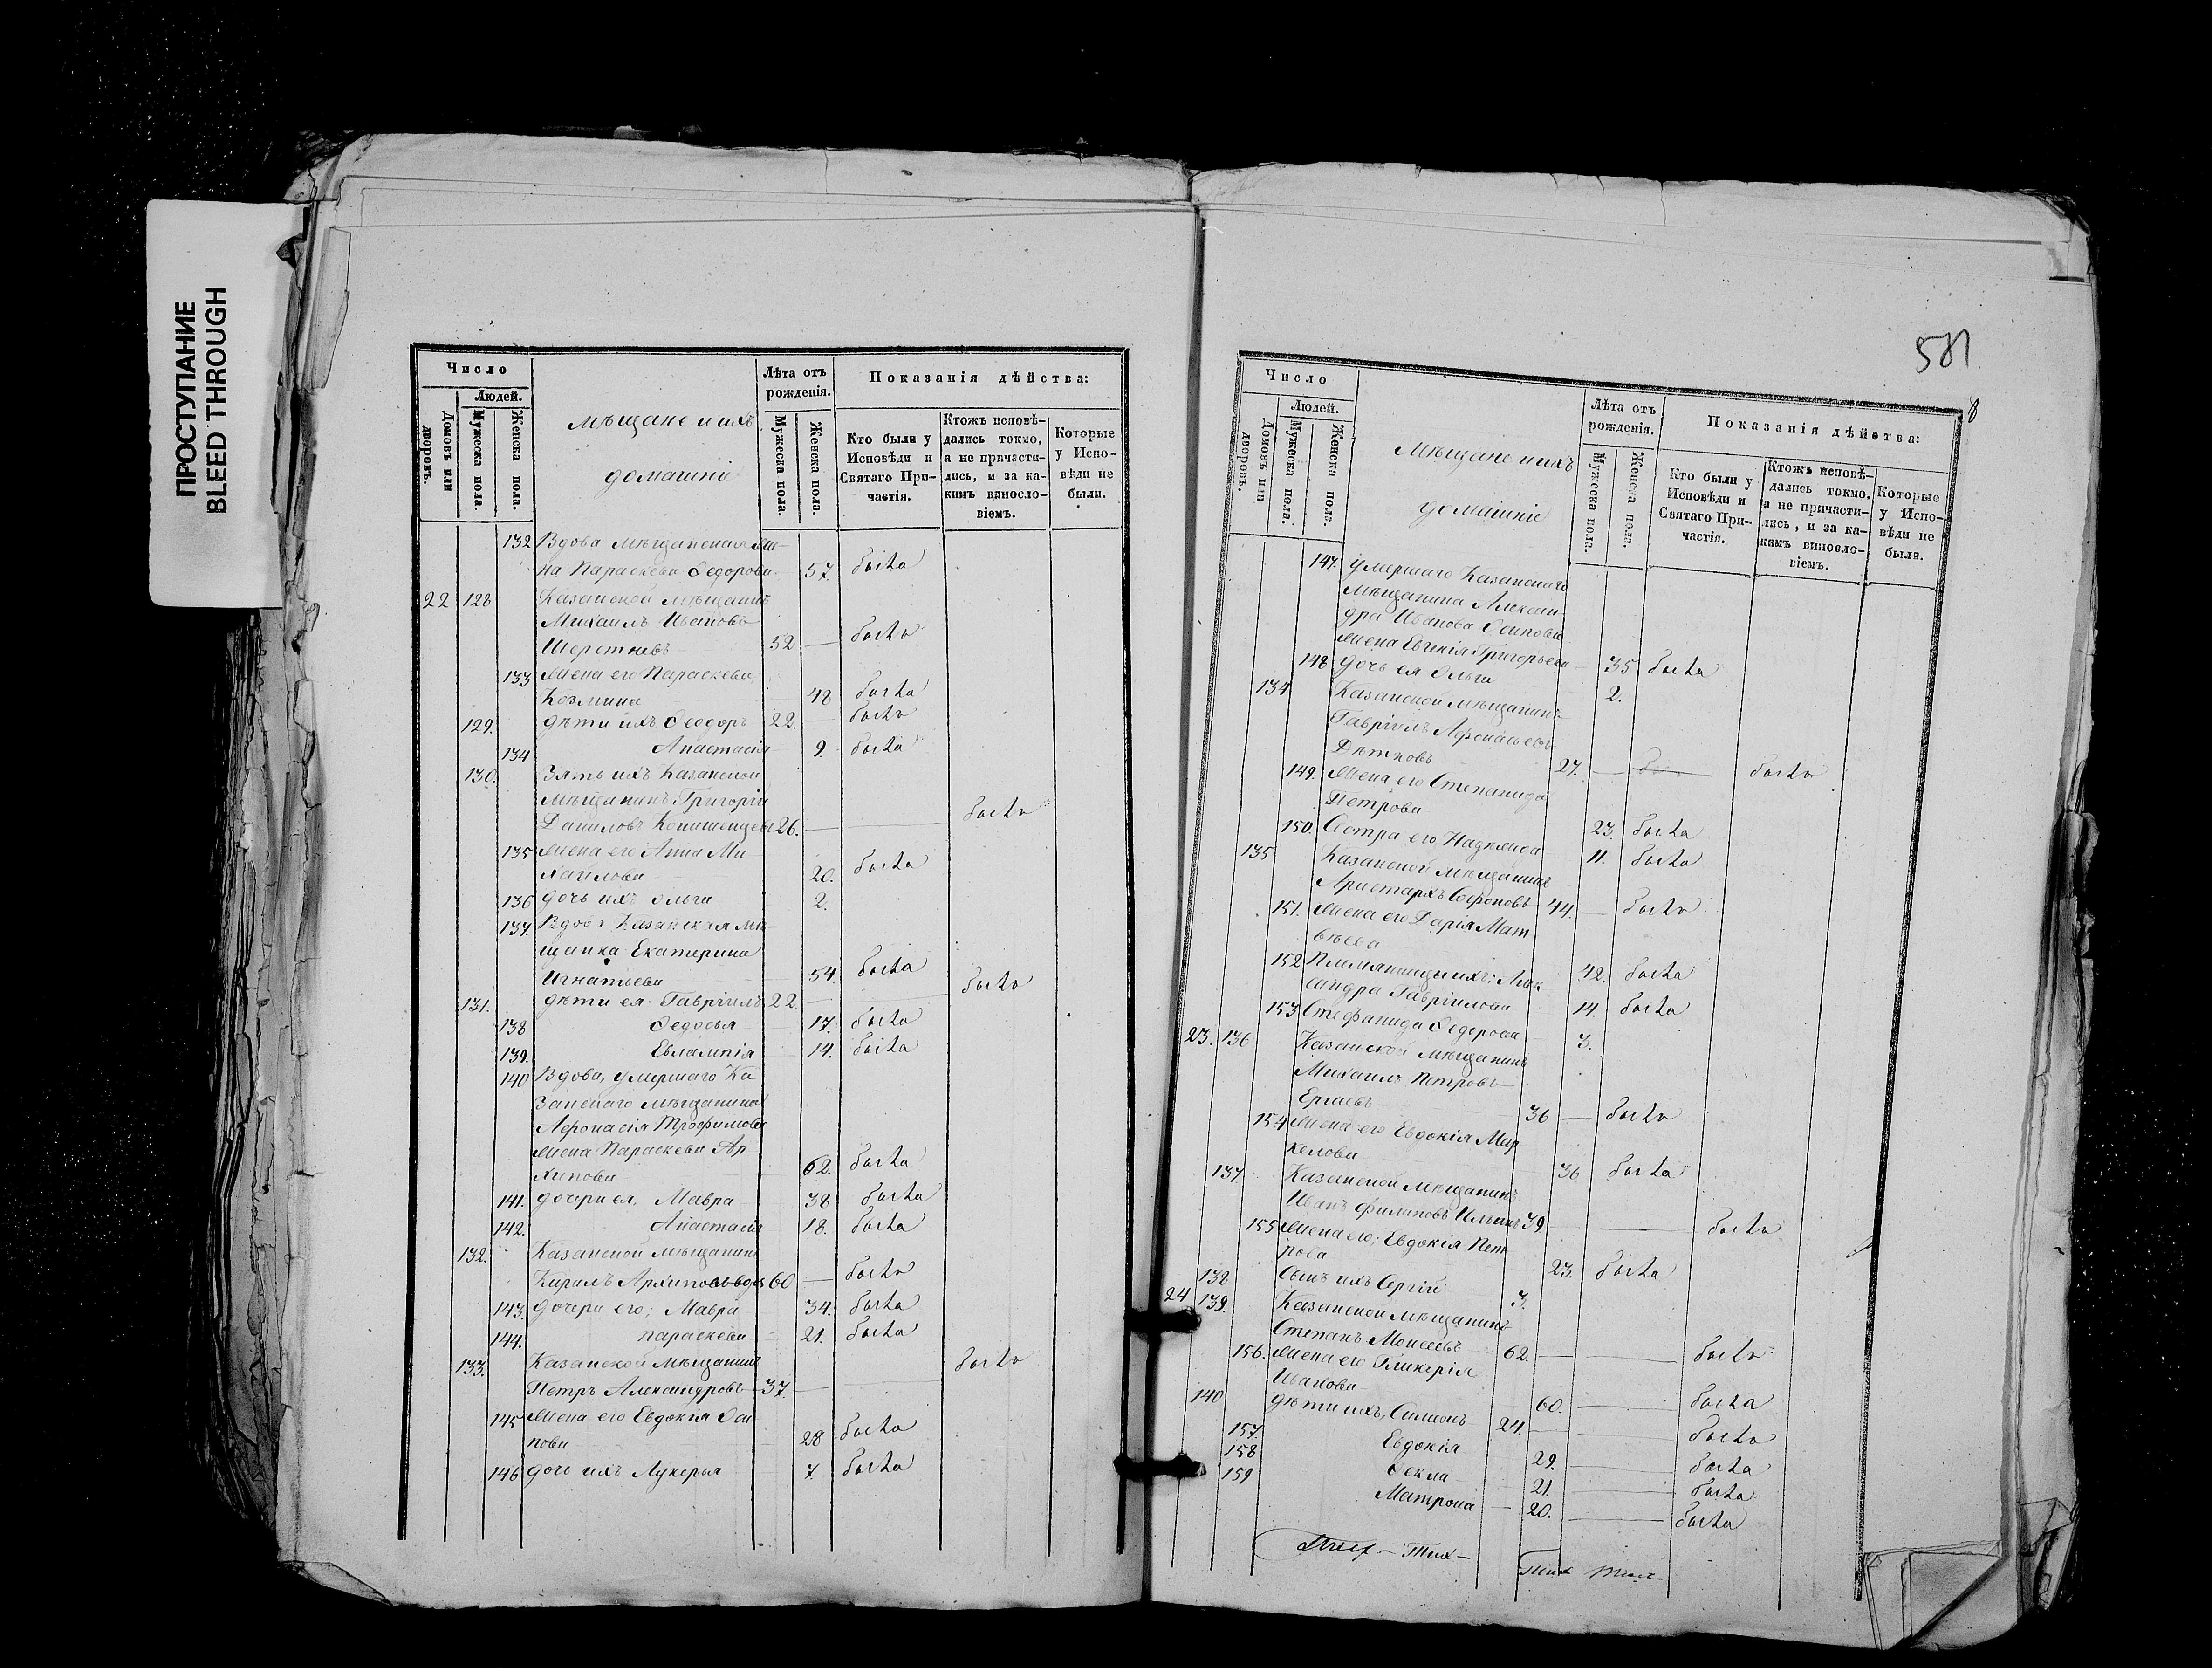 ПРОСТУПАНИЕ
BLEED THROUGH
Число
Людей.
Домовъ или дворовъ.
Мужеска пола.
Женска пола.
мѣщане и ихъ
домашніе
Лѣта отъ рожденія.
Мужеска пола.
Женска пола.
Показанія дѣйства:
Кто были у Исповѣди и Святаго Причастія.
Ктожъ исповѣдались токмо, а не причастились, и за какимъ винословіемъ.
Которые у Исповѣди не были.
132 Вдова мѣщанская
на Параскева Ѳедорова 57. была
22 128 Казанской мѣщанинъ
Михаилъ Ивановъ
Шерстневъ 52 — былъ
133 жена его Параскева
Козмина 48 была
129. дѣти ихъ Ѳеодоръ 22. — былъ
134 Анастасія 9. была
130. Зять ихъ Казанской
мѣщанинъ Григорій
Даниловъ 26. — — былъ
135 жена его Анна Ми
хаилова 20. была
136 дочь ихъ Ольга 2.
137. Вдова Казанская мѣ-
щанка Екатерина
Игнатьева 54. была
131. дѣти ея Гавріилъ 22. — — былъ
138 Ѳедосья 17. была
139. Евлампія 14. была
140 Вдова, умершаго Ка
занскаго мѣщанина
Афонасія Трофимова
жена Параскева Ар
хипова 62. была
141. дочери ея, Мавра 38 была
142. Анастасія 18. была
132. Казанской мѣщанинъ
Кирилъ Архиповъ вдов 60 — былъ
143. дочери его; Мавра 34. была
144. параскева 21. была
133. Казанской мѣщанинъ
Петръ Александровъ 37. — — былъ
145 жена его Евдокія Оси
пова 28 была
146 дочь ихъ Лукерья 7. была
581
8
Число
Людей.
Домовъ или дворовъ.
Мужеска пола.
Женска пола.
Мѣщане и ихъ
домашніе
Лѣта отъ рожденія.
Мужеска пола.
Женска пола.
Показанія дѣйства:
Кто были у Исповѣди и Святаго Причастія.
Ктожъ исповѣдались токмо, а не причастились, и за какимъ винословіемъ.
Которые у Исповѣди не были.
147. умершаго Казанскаго
мѣщанина Алексан-
дра Иванова Осипова
жена Евгенія Григорьева 35 была
148 дочь ея Ольга 2.
134 Казанской мѣщанинъ
Гавріилъ Афонасьевъ
Дѣтковъ 27. — былъ
149. жена его Степанида
Петрова 23. была
150. Сестра его Надежда 11. была
135 Казанской мѣщанинъ
Аристархъ Софоновъ 44. — былъ
151. жена его Дарія Мат
вѣева 42. была
152 Племянницы ихъ; Алек
сандра Гавріилова 14. была
153 Стефанида Ѳедорова 3.
23. 136 Казанской мѣщанинъ
Михаилъ Петровъ
36 — былъ
154 жена его Евдокія Мар
келова 36 была
137. Казанской мѣщанинъ
Иванъ Филиповъ Ильинъ 39. — — былъ
155 жена его; Евдокія Пет
рова 23. была
138 Сынъ ихъ Сергій 3.
24 139. Казанской мѣщанинъ
Степанъ Моисеевъ 62. — — былъ
156. жена его Гликерія
Иванова 60. — была
140 дѣти ихъ, Симеонъ 24. — — былъ
157. Евдокія 29. — была
158 Ѳекла 21. — была
159 Матрона 20. — была